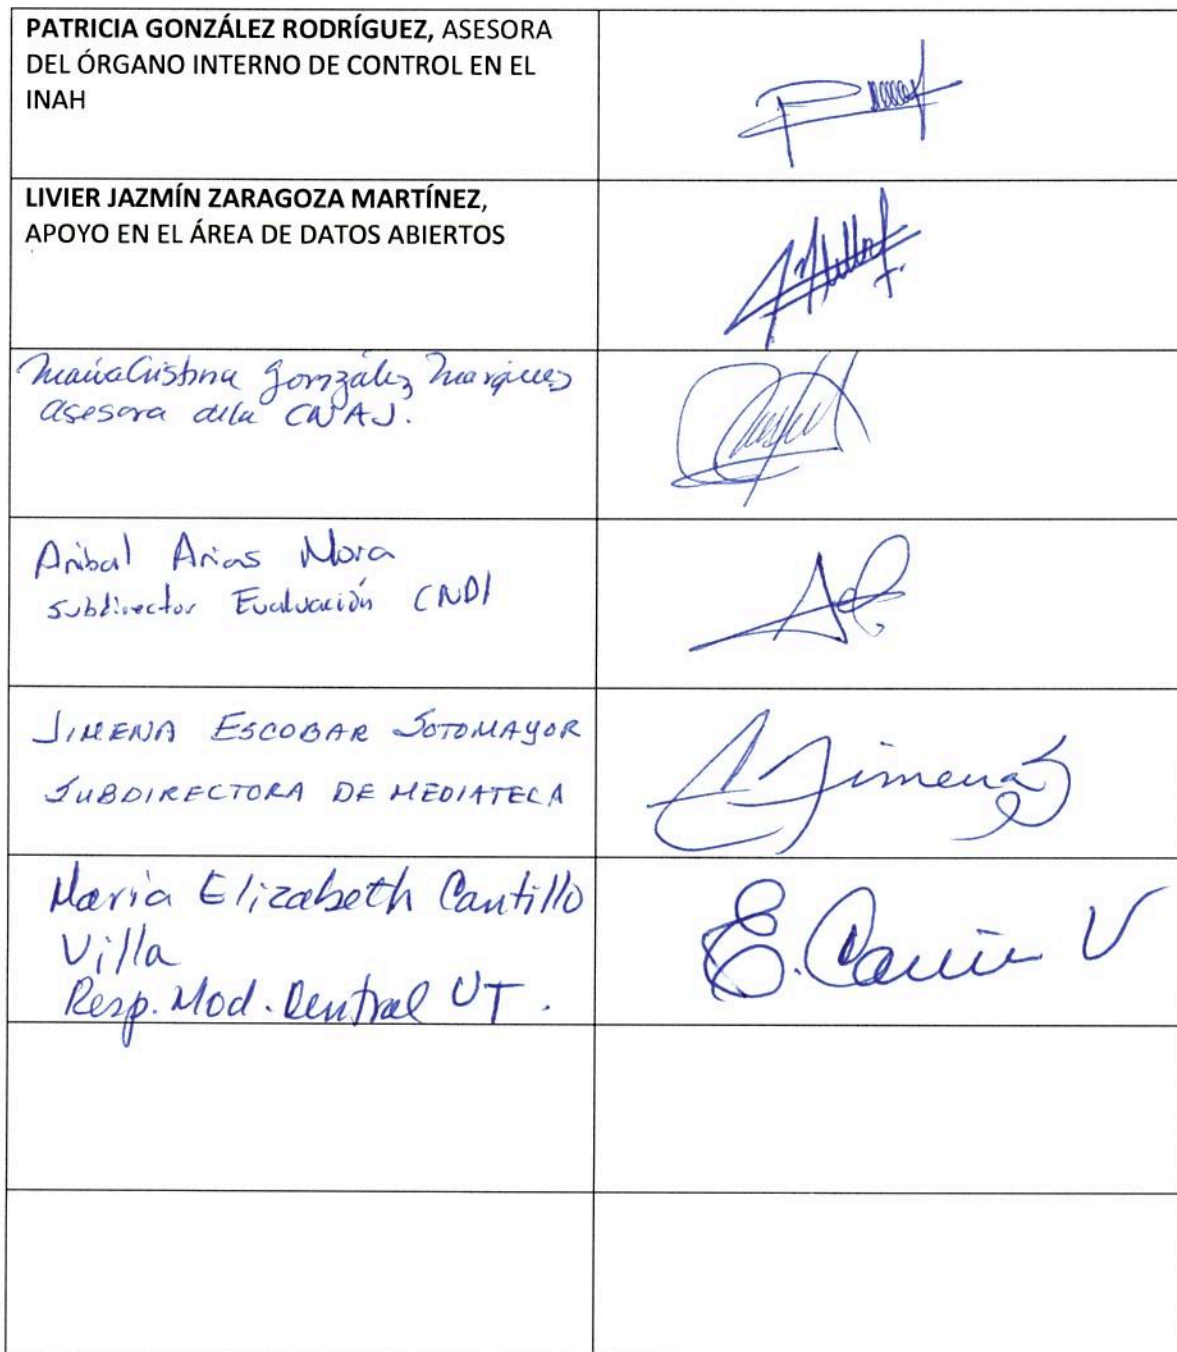 PATRICIA GONZÁLEZ RODRÍGUEZ, ASESORA
DEL ÓRGANO INTERNO DE CONTROL EN EL
INAH
LIVIER JAZMÍN ZARAGOZA MARTÍNEZ,
APOYO EN EL ÁREA DE DATOS ABIERTOS
María Cristina González Marquez
Asesora de la CNAJ.
Anibal Arias Mora
Subdirector Evaluación CNDI
JIMENA ESCOBAR SOTOMAYOR
Jimena
SUBDIRECTORA DE MEDIATECA
María Elizabeth Cantillo
Villa
E. V
Resp. Mod. Central UT.